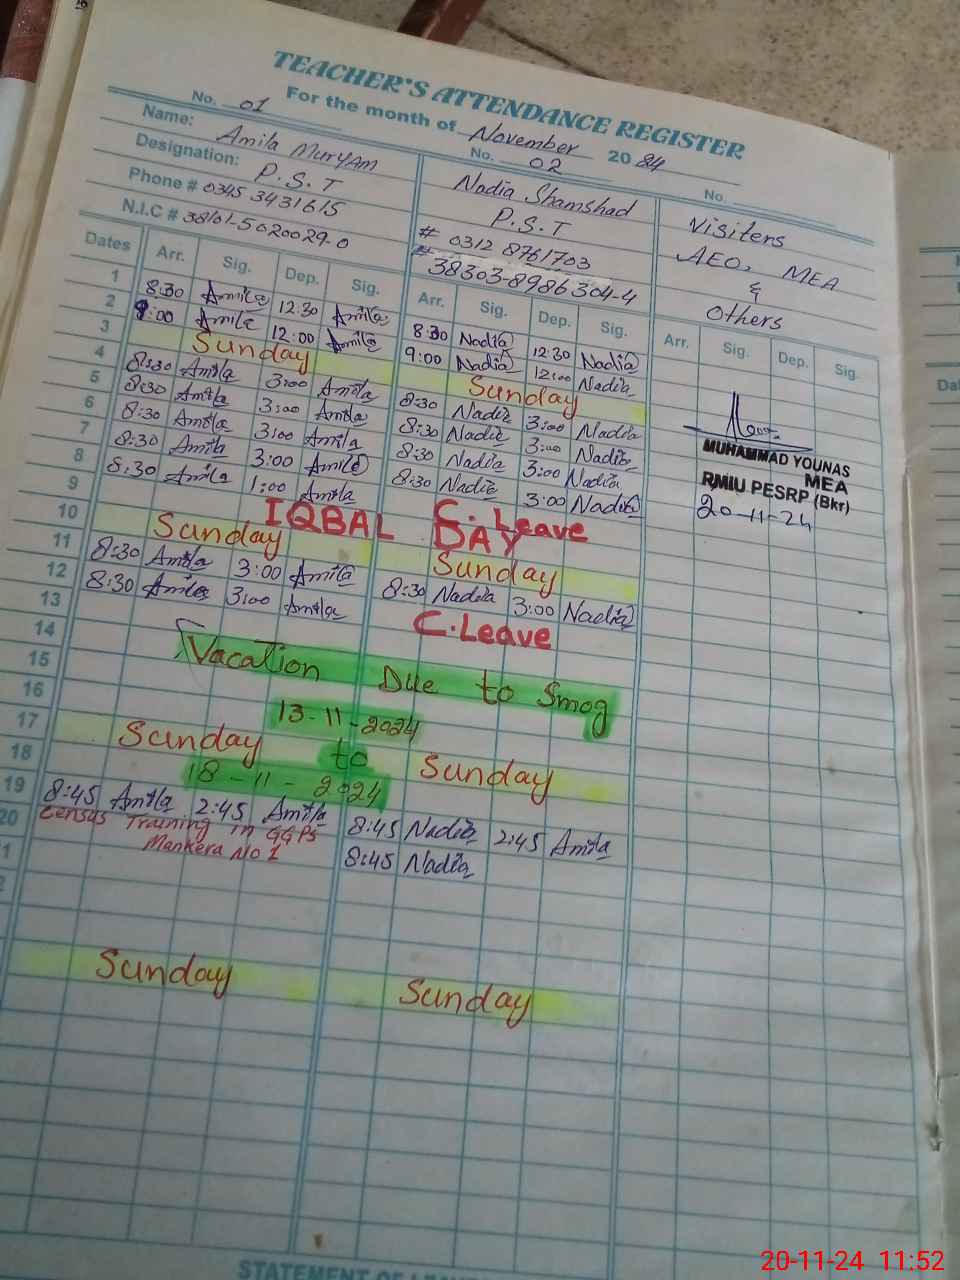 TEACHER'S ATTENDANCE REGISTER
For the month of November 2024
No. 01 No. 02 No.
Name: Amila Muryam Nadia Shamshad Visiters
Designation: P.S.T P.S.T AEO, MEA
Phone # 0345 3431615 # 0312 8761703 &
N.I.C # 38101-5020029-0 # 38303-8986304-4 Others
Dates Arr. Sig. Dep. Sig. Arr. Sig. Dep. Sig. Arr. Sig. Dep. Sig.
1 8:30 Amila 12:30 Amila 8:30 Nadia 12:30 Nadia
2 9:00 Amila 12:00 Amila 9:00 Nadia 12:00 Nadia
3 Sunday Sunday
4 8:30 Amila 3:00 Amila 8:30 Nadia 3:00 Nadia
5 8:30 Amila 3:00 Amila 8:30 Nadia 3:00 Nadia
6 8:30 Amila 3:00 Amila 8:30 Nadia 3:00 Nadia
7 8:30 Amila 3:00 Amila 8:30 Nadia 3:00 Nadia
8 8:30 Amila 1:00 Amila C. Leave
9 IQBAL DAY
10 Sunday Sunday
11 8:30 Amila 3:00 Amila 8:30 Nadia 3:00 Nadia
12 8:30 Amila 3:00 Amila C.Leave
13
14 Vacation Due to Smog
15
16 13-11-2024
17 Sunday to Sunday
18 18-11-2024
19 8:45 Amila 2:45 Amila 8:45 Nadia 2:45 Amila
20 Census Training in GGPS 8:45 Nadia
Mankera No 1
Sunday Sunday
MUHAMMAD YOUNAS
MEA
RMIU PESRP (Bkr)
20-11-24
20-11-24 11:52